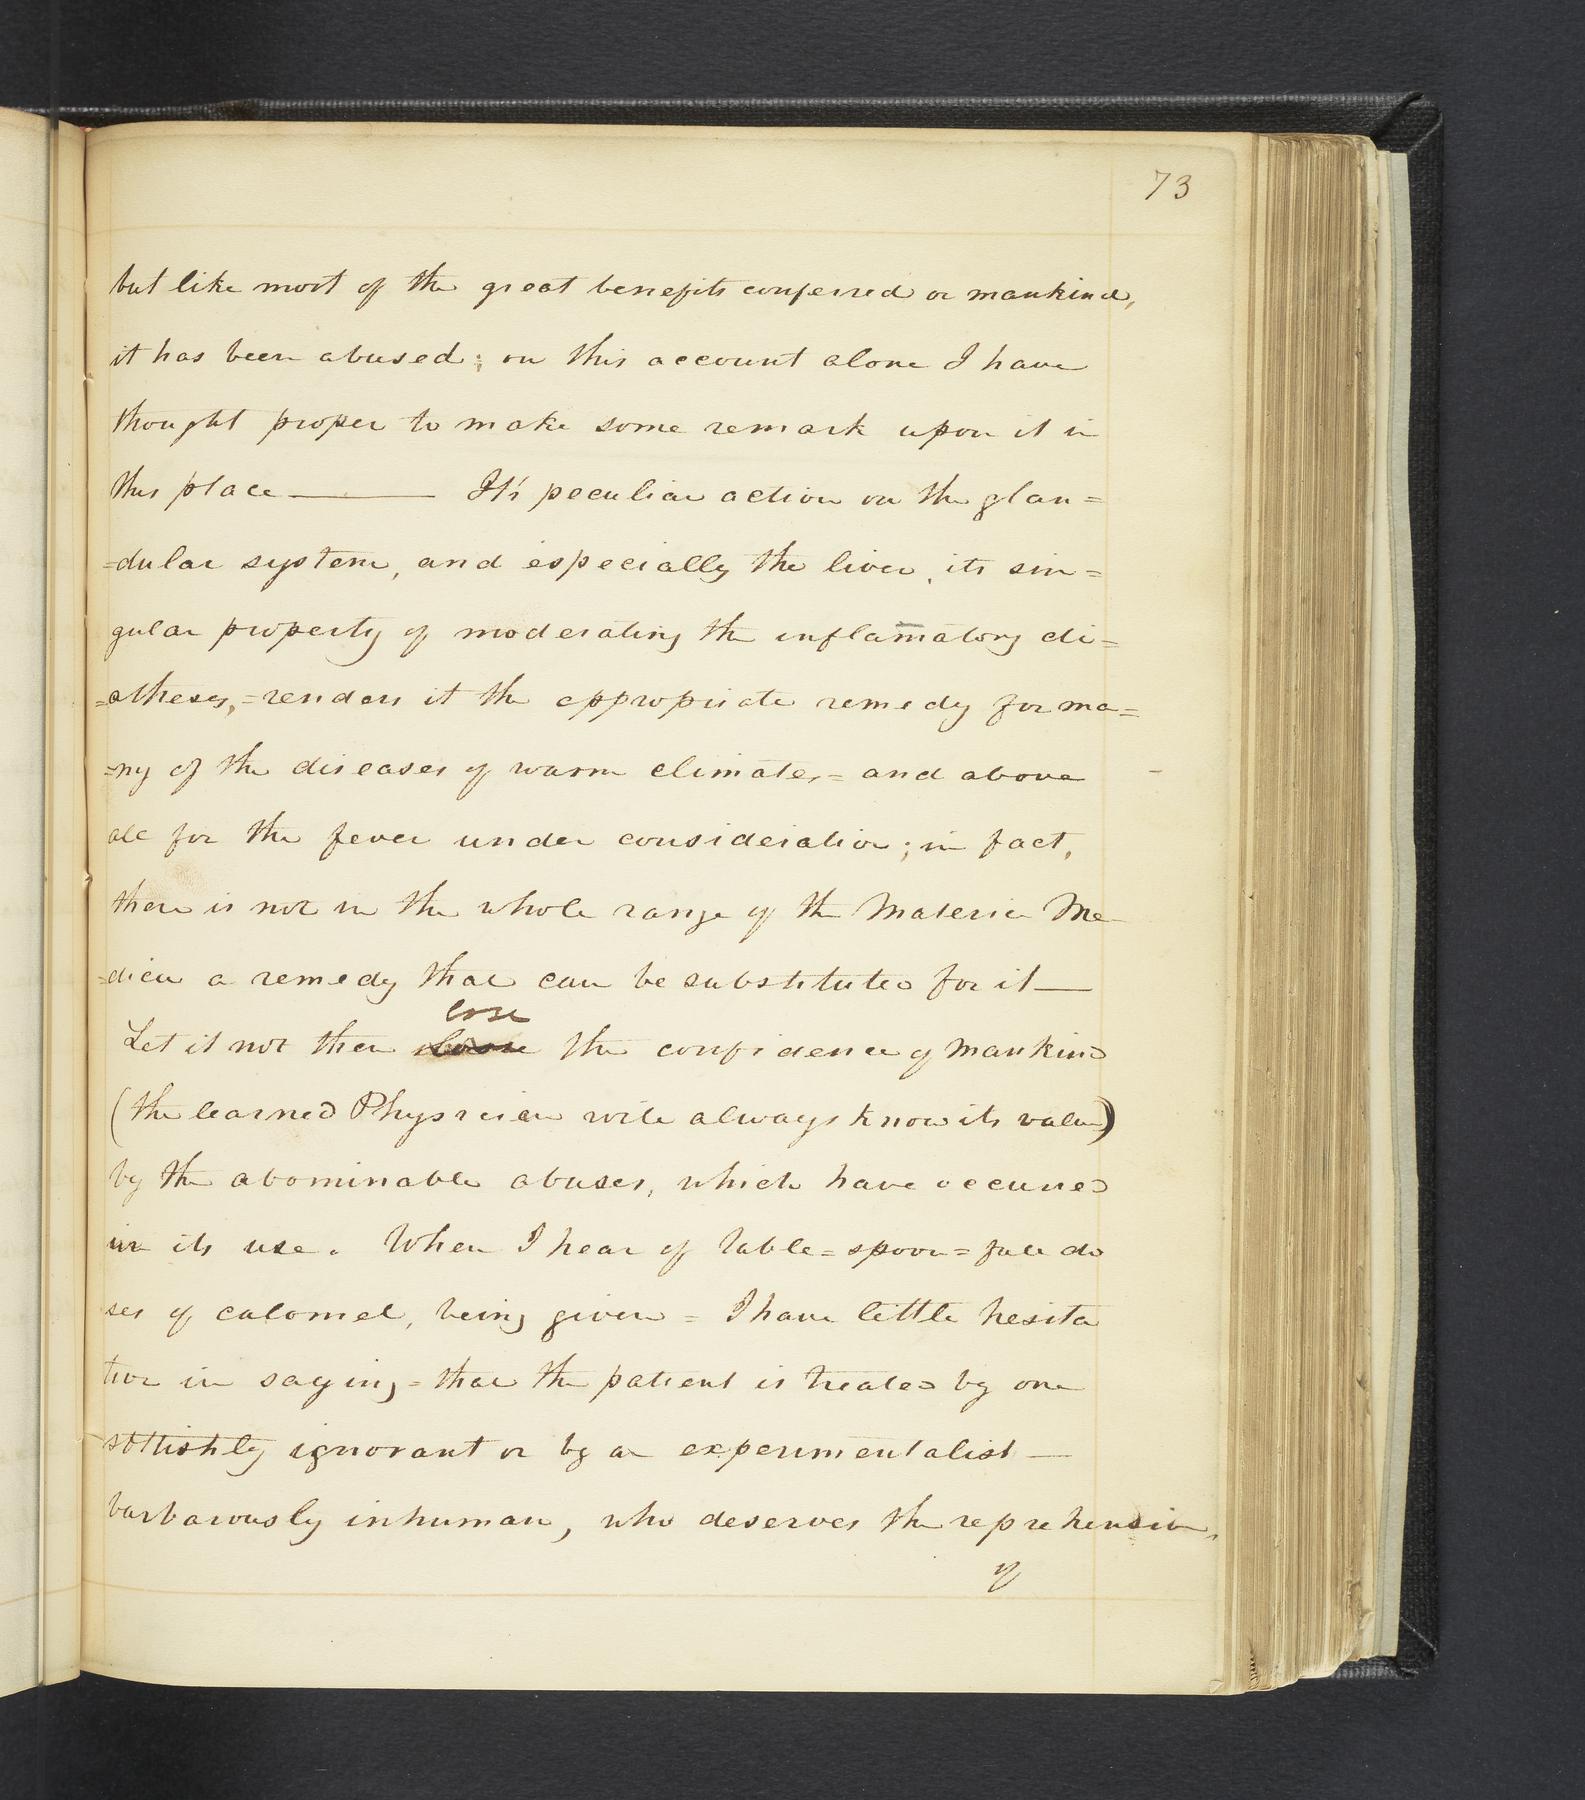 73
but like most of the great benefits conferred on mankind,
it has been abused; on this account alone I have
thought proper to make some remark upon it in
this place——— It's peculiar action on the glan=
=dular system, and especially the liver, its sin=
gular property of moderating the inflam̄atory di=
=atheses,=renders it the appropriate remedy for ma=
=ny of the diseases of warm climates,= and above
all for the fever under consideration; in fact,
there is not in the whole range of the Materia Me
=dica a remedy that can be substituted for it—
lose
Let it not then the confidence of mankind
(the learned Physician will always know its value)
by the abominable abuses, which have occured
in its use. When I hear of table=spoon=full do
ses of calomel, being given = I have little hesita
tion in saying=that the patient is treated by one
sottishly ignorant or by an experimentalist—
barbarously inhuman, who deserves the reprehension,
of